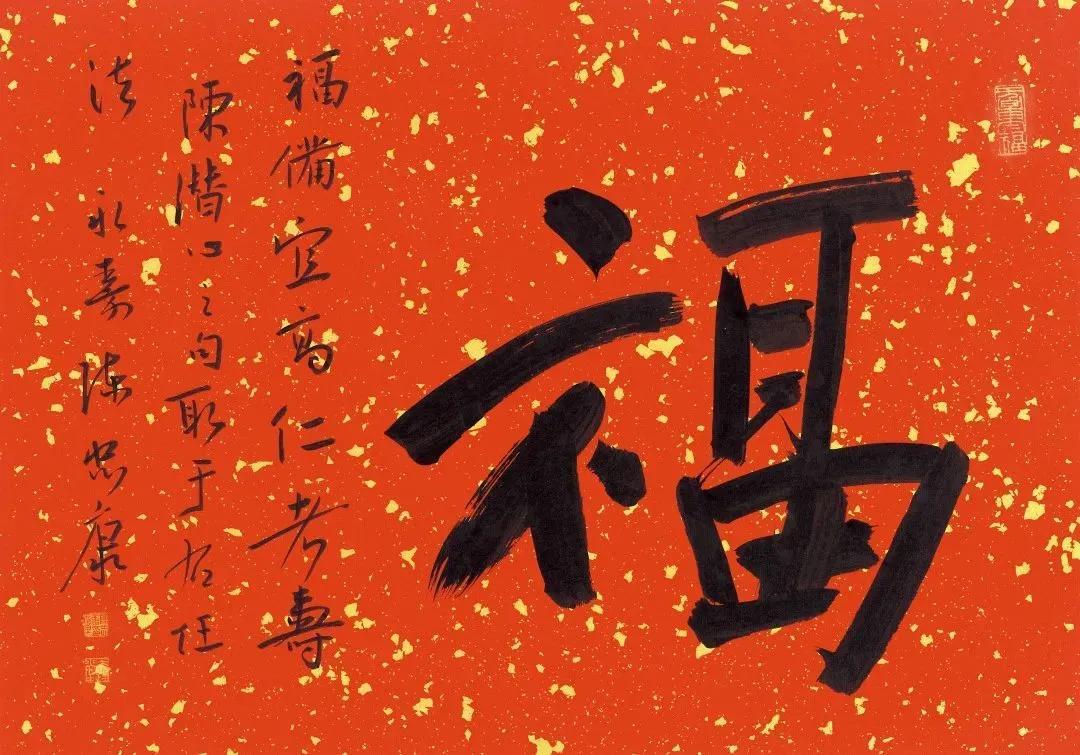 福
福備宜高仁者壽
陳潛心之句取于右任
法 永嘉陳忠康